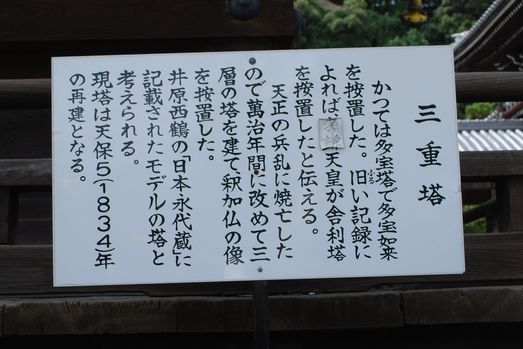 三重塔
かつては多宝塔で多宝如来
を按置した。旧い記録に
ふる
よれば 天皇が舎利塔
を按置したと伝える。
天正の兵乱に焼亡した
ので萬治年間に改めて三
層の塔を建て釈加仏の像
を按置した。
井原西鶴の「日本永代蔵」に
記載されたモデルの塔と
考えられる。
現塔は天保5(1834)年
の再建となる。